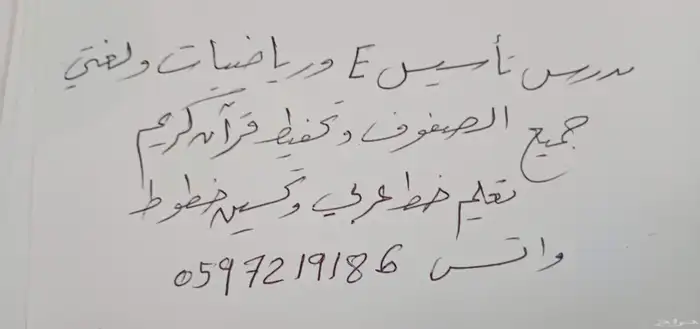 مدرس تأسيس E ورياضيات ولغتي
جميع الصفوف وتحفيظ قرآن كريم
تعليم خط عربي وتحسين خطوط
واتس 0597219186